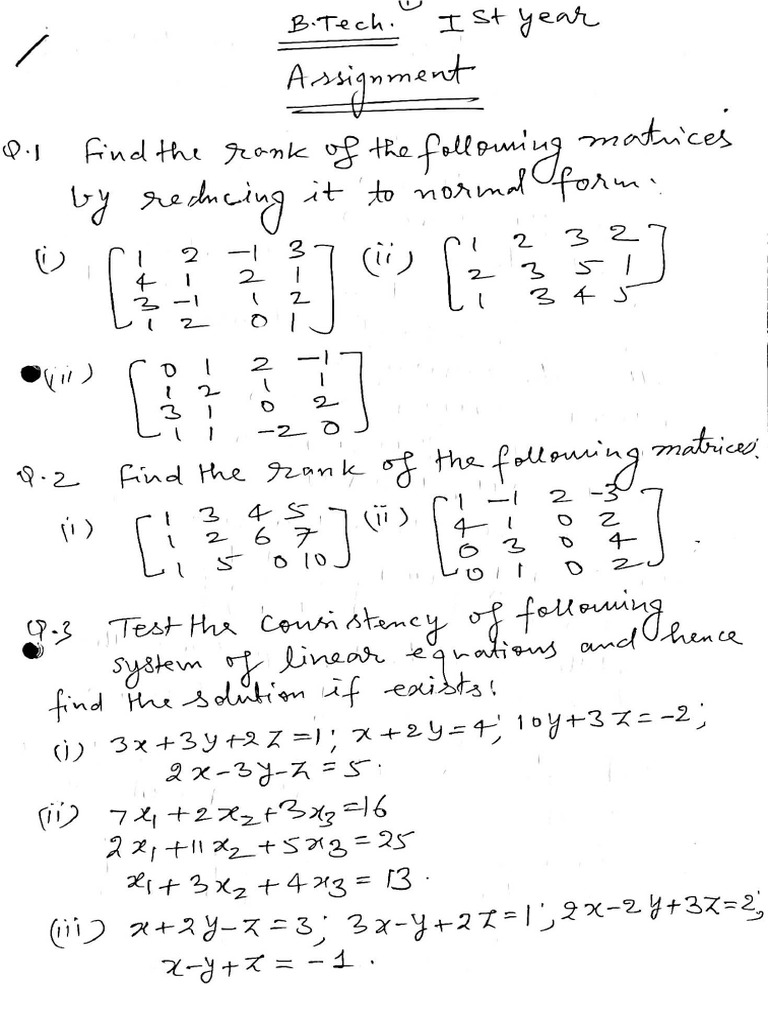 B.Tech. I St year
Assignment
Q.1 Find the rank of the following matrices
by reducing it to normal form.
(i) [1 2 -1 3 (ii) [1 2 3 2]
4 1 2 1 2 3 5 1
3 -1 1 2 1 3 4 5
1 2 0 1]
(iii) [0 1 2 -1]
1 2 1 1
3 1 0 2
1 1 -2 0
Q.2 Find the rank of the following matrices.
(i) [1 3 4 5] (ii) [1 -1 2 -3]
1 2 6 7 4 1 0 2
1 5 0 10 0 3 0 4
0 1 0 2
Q.3 Test the consistency of following
system of linear equations and hence
find the solution if exists!
(i) 3x+3y+2z=1; x+2y=4; 10y+3z=-2;
2x-3y-z=5.
(ii) 7x1+2x2+3x3=16
2x1+11x2+5x3=25
x1+3x2+4x3=13.
(iii) x+2y-z=3; 3x-y+2z=1; 2x-2y+3z=2;
x-y+z=-1.